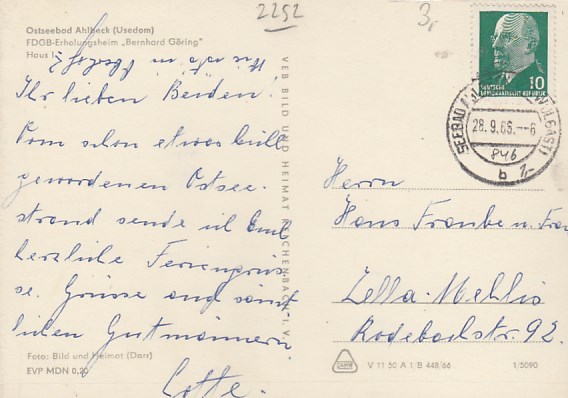 Ostseebad Ahlbeck (Usedom)
FDGB-Erholungsheim „Bernhard Göring"
Haus I
2252
3,
Ihr lieben Beiden!
Vom schon etwas
gewordenen Ostsee-
strand sende ich Euch
herzliche Feriengrüs-
se. Grüsse auch sämt
lichen Gutmännern.
Lotte.
Foto: Bild und Heimat (Darr)
EVP MDN 0,20
VEB BILD UND HEIMAT REICHENBACH I. V.
10
DEUTSCHE
DEMOKRATISCHE REPUBLIK
SEEBAD (WOLGAST)
28.9.66.-6
b
846
Herrn
Hans Fraube u. Frau
Zella-Mehlis
Rodebachstr. 92.
V 11 50 A 1/B 448/66
1/5090